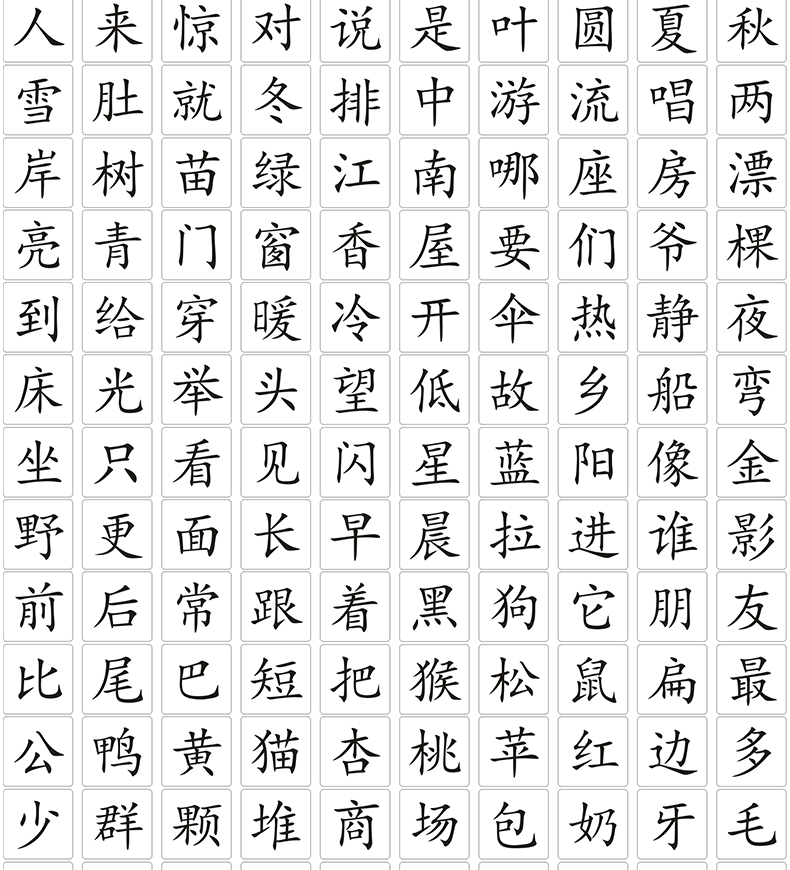 人 来 惊 对 说 是 叶 圆 夏 秋
雪 肚 就 冬 排 中 游 流 唱 两
岸 树 苗 绿 江 南 哪 座 房 漂
亮 青 门 窗 香 屋 要 们 爷 棵
到 给 穿 暖 冷 开 伞 热 静 夜
床 光 举 头 望 低 故 乡 船 弯
坐 只 看 见 闪 星 蓝 阳 像 金
野 更 面 长 早 晨 拉 进 谁 影
前 后 常 跟 着 黑 狗 它 朋 友
比 尾 巴 短 把 猴 松 鼠 扁 最
公 鸭 黄 猫 杏 桃 苹 红 边 多
少 群 颗 堆 商 场 包 奶 牙 毛